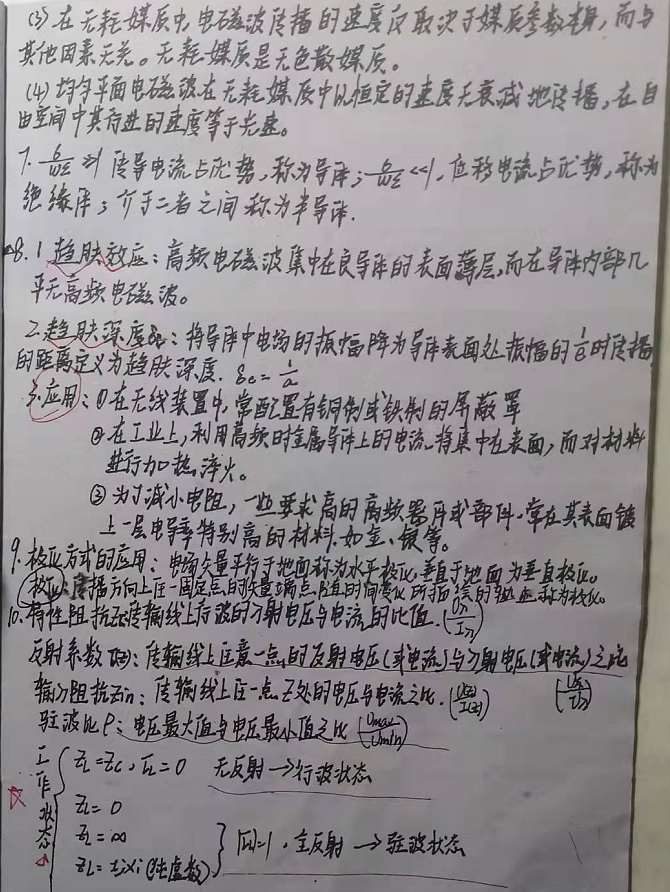 (3) 在无耗媒质中,电磁波传播的速度仅取决于媒质参数本身,而与
其他因素无关。无耗媒质是无色散媒质。
(4) 均匀平面电磁波在无耗媒质中以恒定的速度无衰减地传播,在自
由空间中其行进的速度等于光速。
7. σ/ωε ≫1 传导电流占优势,称为导体; σ/ωε <<1, 位移电流占优势,称为
绝缘体; 介于二者之间称为半导体.
8. 1 趋肤效应: 高频电磁波集中在良导体的表面薄层,而在导体内部几
乎无高频电磁波。
2. 趋肤深度δc: 将导体中电场的振幅降为导体表面处振幅的1/e时传播
的距离定义为趋肤深度. δc = 1/α
3. 应用: ①在无线装置中,常配置有铜制或铁制的屏蔽罩
②在工业上,利用高频时金属导体上的电流将集中在表面,而对材料
进行加热,淬火。
③ 为了减小电阻, 一些要求高的高频器件或部件,常在其表面镀
上一层电导率特别高的材料.如金、银等。
9. 极化方式的应用: 电场矢量平行于地面称为水平极化,垂直于地面为垂直极化。
极化: 传播方向上任一固定点的矢量端点随时间变化所描绘的轨迹称为极化。
10. 特性阻抗Zc: 传输线上行波的入射电压与电流的比值.
反射系数Γ(z): 传输线上任意一点的反射电压(或电流)与入射电压(或电流)之比
输入阻抗Zin: 传输线上任一点Z处的电压与电流之比. (U(z)/I(z))
驻波比ρ: 电压最大值与电压最小值之比 (Umax/Umin)
工作状态
ZL=Zc, ΓL=0 无反射→行波状态
ZL=0
ZL=∞
ZL=±jXi (纯虚数)
|Γ|=1, 全反射 → 驻波状态